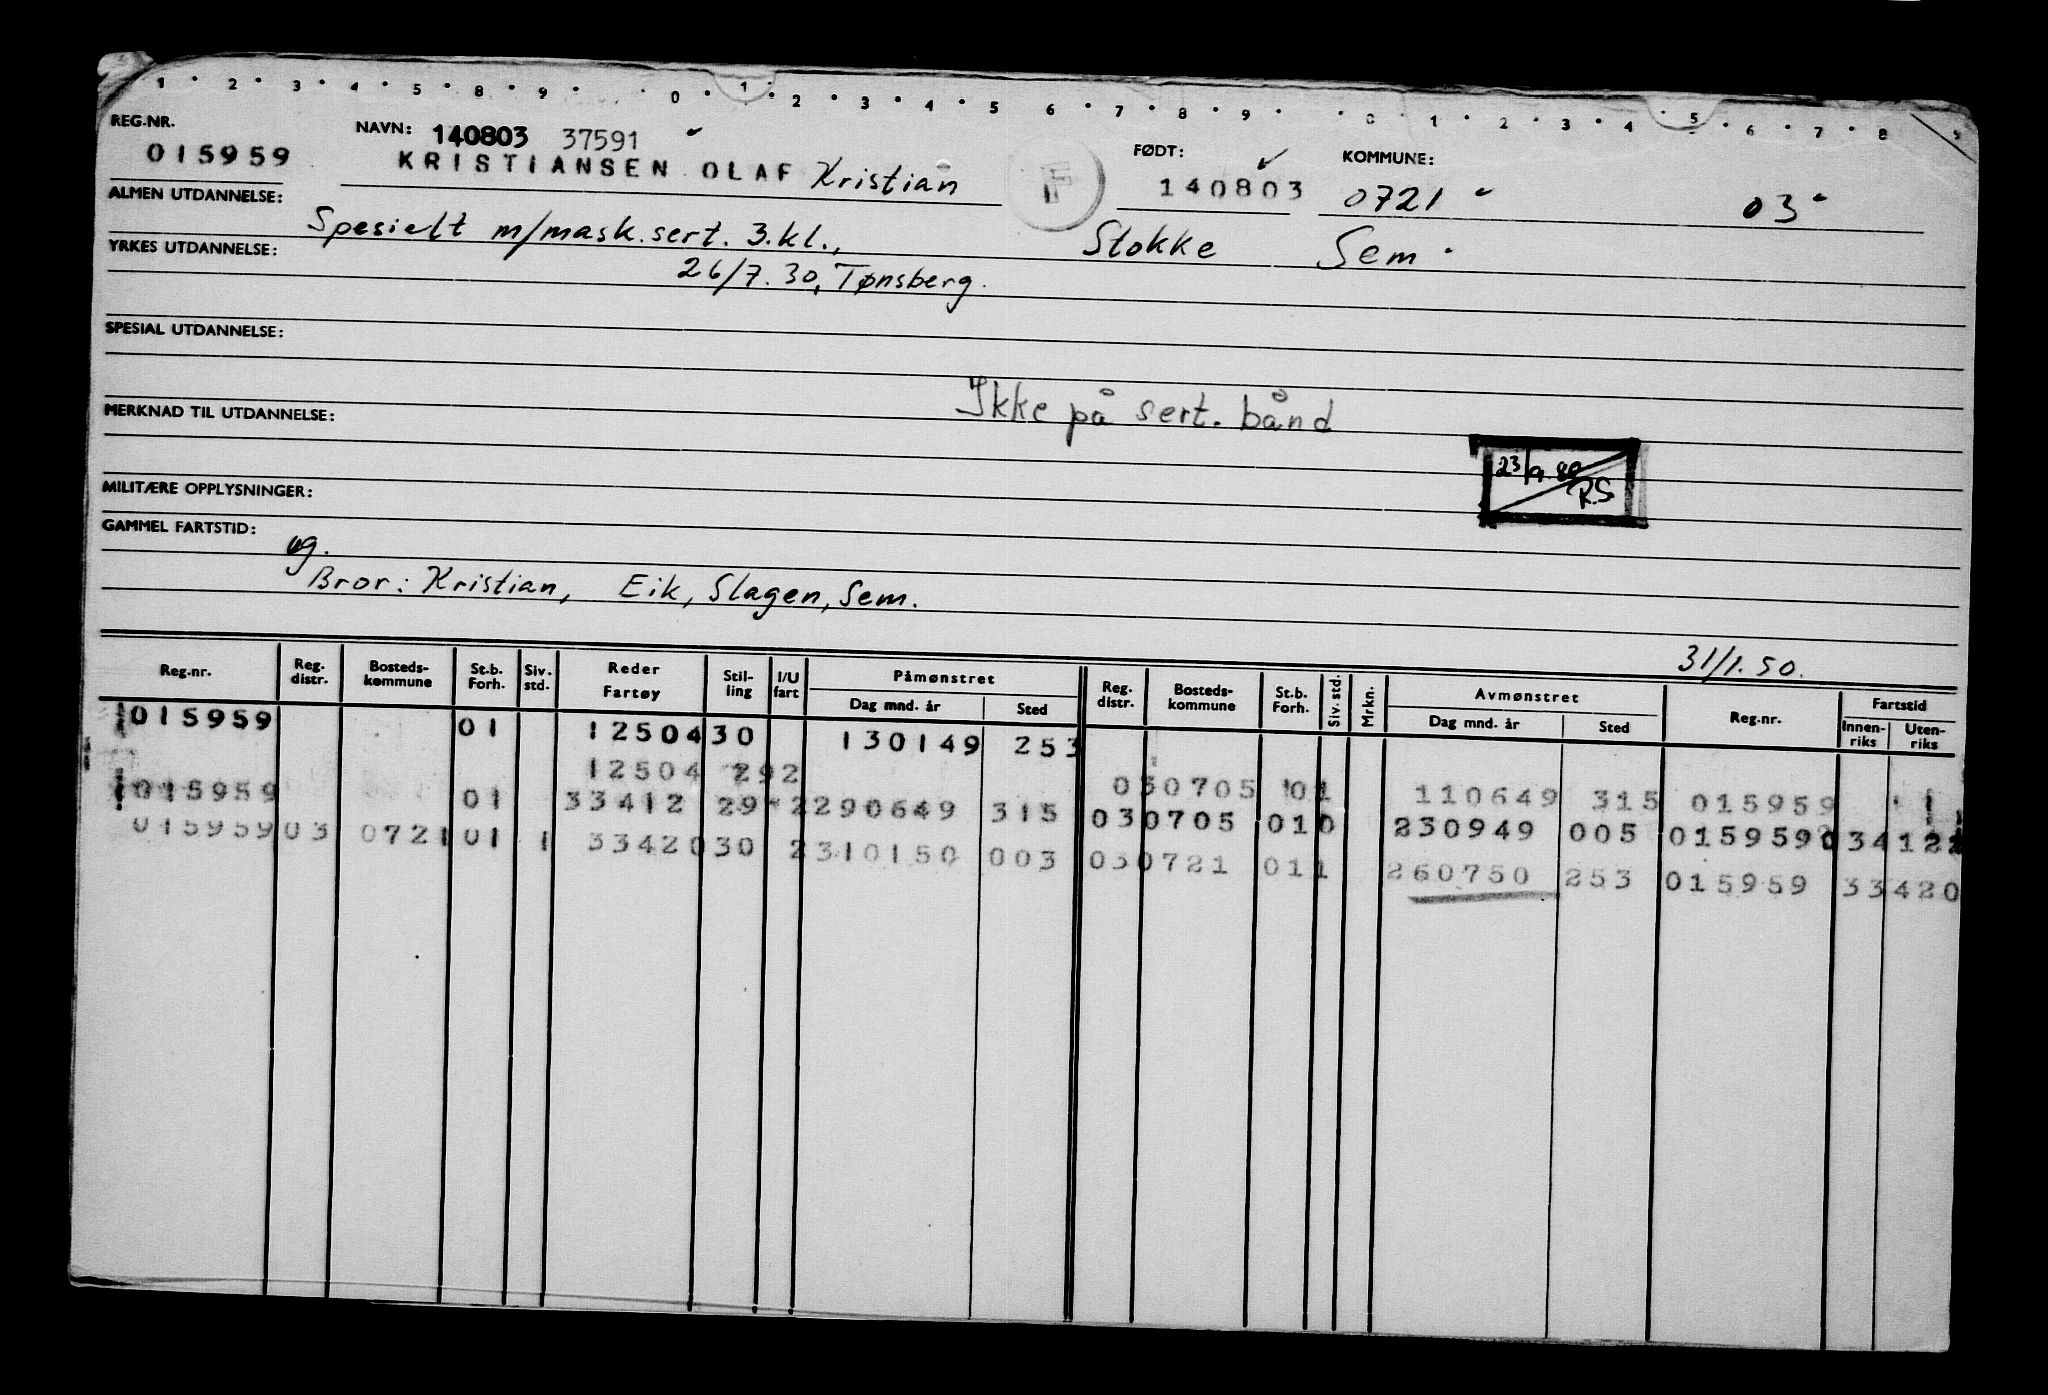 1 2 3 4 5 8 9 0 1 2 3 4 5 6 7 8 9 0 1 2 3 4 5 6 7 8 9
REG.NR. NAVN: 140803 37591 FØDT: KOMMUNE:
015959 KRISTIANSEN OLAF Kristian F 140803 0721 03
ALMEN UTDANNELSE:
Spesielt m/mask.sert. 3.kl., Stokke Sem
YRKES UTDANNELSE:
26/7.30, Tønsberg.
SPESIAL UTDANNELSE:
Ikke på sert. bånd
MERKNAD TIL UTDANNELSE:
R.S
MILITÆRE OPPLYSNINGER:
GAMMEL FARTSTID:
ug.
Bror: Kristian, Eik, Slagen, Sem.
31/1.50.
Reg.nr. Reg. distr. Bosteds-kommune St.b. Forh. Siv. std. Reder Fartøy Stil-ling I/U fart Påmønstret Dag mnd. år Sted Reg. distr. Bosteds-kommune St.b. Forh. Siv. std. Mrkn. Avmønstret Dag mnd. år Sted Reg.nr. Fartstid Innen-riks Uten-riks
015959 01 12504 30 130149 253
12504 292 030705 01 1 110649 315 015959
015959 01 33412 29 2 290649 315 030705 01 0 230949 005 015959 0 34122
015959 03 0721 01 1 33420 30 2 310150 003 030721 01 1 260750 253 015959 33420